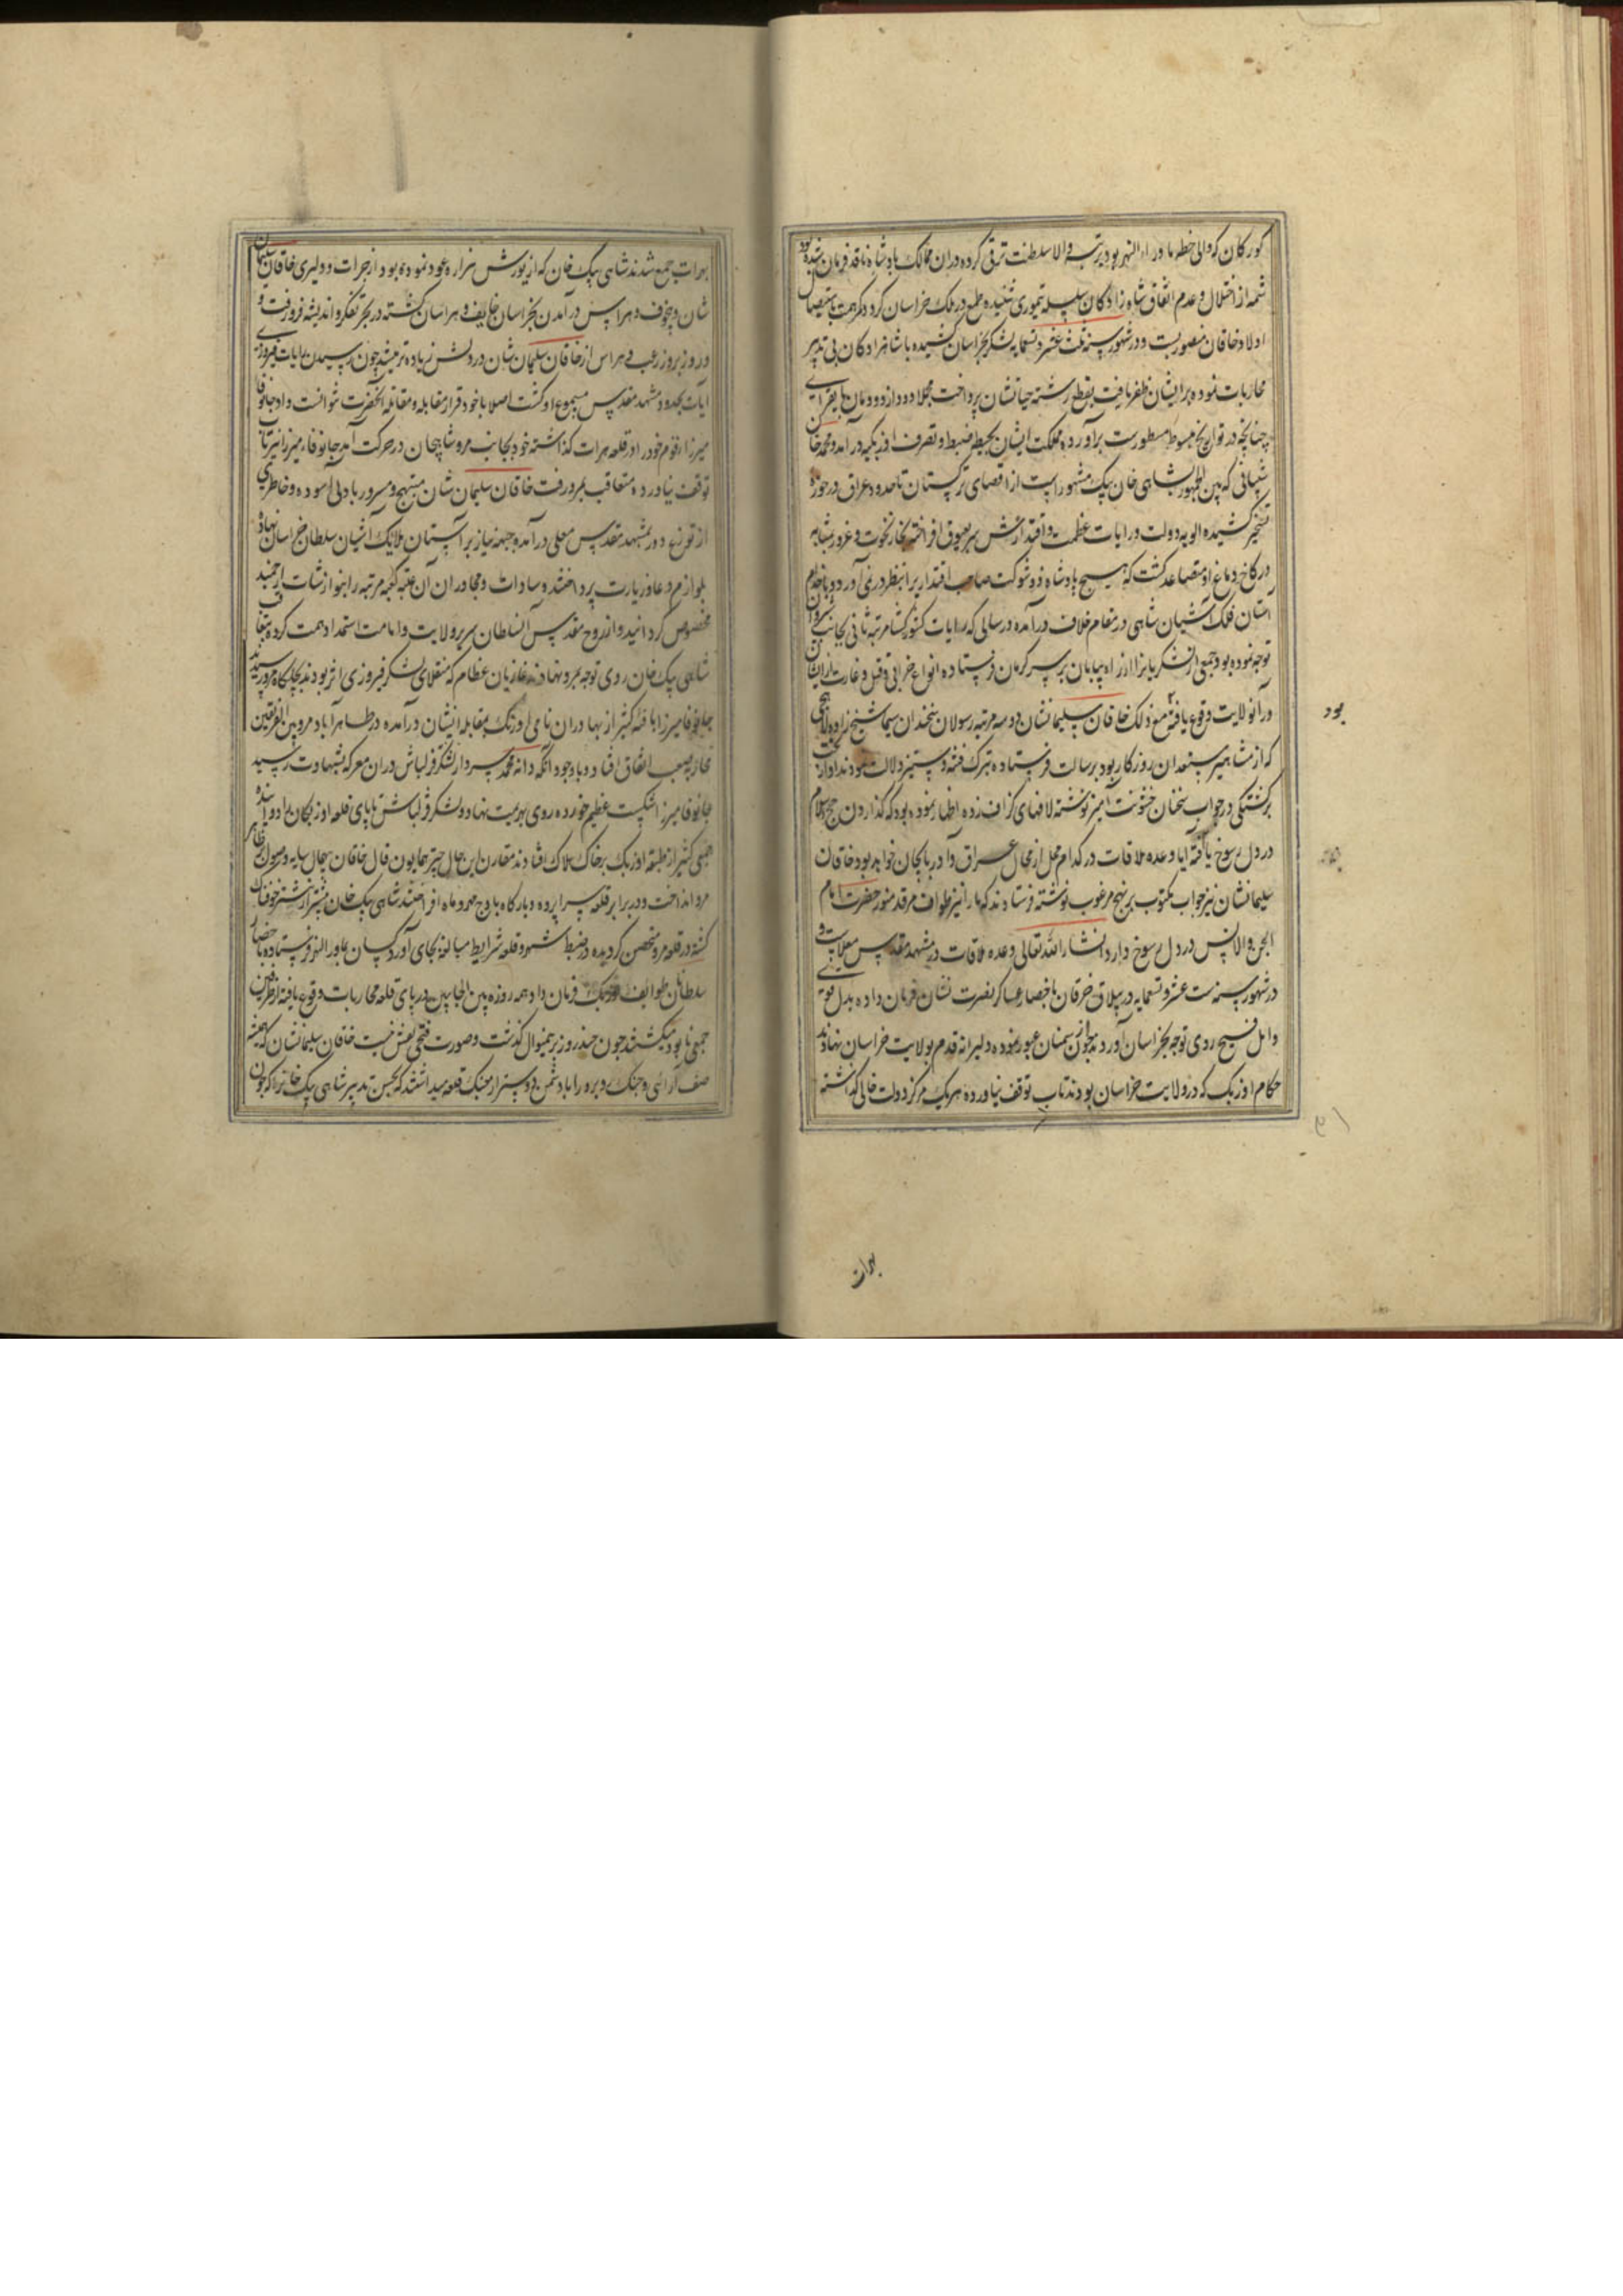 کورکان که والی خطه ماوراء النهر بود برتبه والا سلطنت ترقی کرده دران ممالک پادشاه نافذ فرمان شده بود
شمه از اختلال و عدم اتفاق شاه زادکان سلسله تیموری شنیده طمع در ملک خراسان کرد و کمر همت باستیصال
اولاد خاقان منصور بست و در شهور سنه ثلث عشر و تسعمایه لشکر بخراسان کشیده با شاهزادکان بی تدبیر
محاربات نموده بر ایشان ظفر یافت بقطع رشته حیاتشان پرداخت مجملا دود از دودمان بایقرای
چنانچه در تواریخ مبسوط مسطورست برآورده مملکت ایشان بحیطه ضبط و تصرف اوزبکیه درآمد و محمد خان
شیبانی که بین الجمهور بشاهی خان بیک مشهور است از اقصای ترکستان تا حدود عراق در حوزه
تسخیر کشیده الویه دولت و رایات عظمت و اقتدارش سر بعیوق افراخته بخار نخوت و غرور بمثابه
در کاخ دماغ او متصاعد کشت که هیچ پادشاه ذو شوکت صاحب اقتدار را بنظر در نمی آورد و با خدام
آستان فلک آشیان شاهی در مقام خلاف درآمده در سالی که رایات کشورکشا مرتبه ثانی بجانب شروان
توجه نموده بود جمعی از لشکریانرا از راه بیابان بر سر کرمان فرستاده انواع خرابی و قتل و غارت از ایشان
در آن ولایت وقوع یافته مع ذلک خاقان سلیمانشان دو سه مرتبه رسولان سخندان سیما شیخ زاده لاهیجی
که از مشاهیر مستعدان روزکار بود برسالت فرستاده بترک فتنه و ستیز دلالت نمودند او از بخت
برکشتکی در جواب سخنان خشونت آمیز نوشته لافهای کزاف زده اظهار نموده بود که کذاردن حج اسلام
در دل رسوخ یافته آیا وعده ملاقات در کدام محل از محال عراق و آذربایجان خواهد بود خاقان
سلیمانشان نیز جواب مکتوب بر نهج مرغوب نوشته فرستادند که ما را نیز طواف مرقد منور حضرت امام
الجن والانس در دل رسوخ دارد انشاء الله تعالی وعده ملاقات در مشهد مقدس معلاست و
در شهور سنه ست عشر و تسعمایه در ییلاق خرقان باحضار عساکر نصرت نشان فرمان داده بدل قوی
و امل فسیح روی توجه بخراسان آوردند چون از سمنان عبور نموده دلیرانه قدم بولایت خراسان نهادند
حکام اوزبک که در ولایت خراسان بودند تاب توقف نیاورده هر یک مرکز دولت خالی گذاشته
بود
بهرات
بهرات جمع شدند شاهی بیک خان که از یورش هزاره عود نموده بود از جرات و دلیری خاقان سلیمان
شان و بخوف و هراس درآمدن بخراسان خایف و هراسان کشته در بحر تفکر و اندیشه فرو رفت و
روز بروز رعب و هراس از خاقان سلیمان شان در دلش زیاده تر میشد چون رسیدن رایات فیروزی
آیات بحدود مشهد مقدس مسموع او کشت اصلا با خود قرار مقابله و مقاتله آنحضرت نتوانست داد جانوفا
میرزا را قوم خود را در قلعه هرات گذاشته خود بجانب مرو شاهیجان در حرکت آمد جانوفاء میرزا نیز تاب
توقف نیاورده متعاقب بمرو رفت خاقان سلیمان شان مبتهج و مسرور با دلی آسوده و خاطری
از توزع دور بمشهد مقدس معلی درآمده جبهه نیاز بر آستان ملایک آشیان سلطان خراسان نهاده
بلوازم دعا و زیارت پرداختند و سادات و مجاوران آن عتبه کعبه مرتبه را بنوازشات ارجمند
مخصوص کردانید و از روح مقدس آن سلطان سریر ولایت و امامت استمداد همت کرده بتعاقب
شاهی بیک خان روی توجه بمرو نهادند غازیان عظام که منقلای لشکر فیروزی اثر بودند بچالکاه مرو رسیدند
جانوفا میرزا با فئه کثیر از بهادران نامی اوزبک بمقابله ایشان درآمده در طاهرآباد مرو بین الفریقین
محاربه صعب اتفاق افتاد و با وجود آنکه دانه محمد سردار لشکر قزلباش دران معرکه بشهادت رسید
جانوفا میرزا شکست عظیم خورده روی بهزیمت نهاد و لشکر قزلباش تا پای قلعه اوزبکان را دوانیده
جمعی کثیر از طبقه اوزبک بر خاک هلاک افتادند مقارن این حال چتر همایون فال خاقان بیهمال سایه وصول بظاهر
مرو انداخت و در برابر قلعه سراپرده و بارکاه باوج مهر و ماه افراختند شاهی بیک خان بیشتر از پیشتر خوفناک
کشته در قلعه مرو متحصن کردیده در ضبط شهر و قلعه شرایط مبالغه بجای آورد کسان بماوراء النهر فرستاده باحضار
سلطانان طوایف اوزبک فرمان داد همه روزه بین الجانبین در پای قلعه محاربات وقوع یافته از طرفین
جمعی نابود میکشتند چون چند روز برین منوال کذشت و صورت فتحی نقش نبست خاقان سلیمانشان که همیشه
صف آرائی و جنک روبرو را با دشمن دوستر از جنک قلعه میداشتند که بحسن تدبیر شاهی بیک خانرا که چون